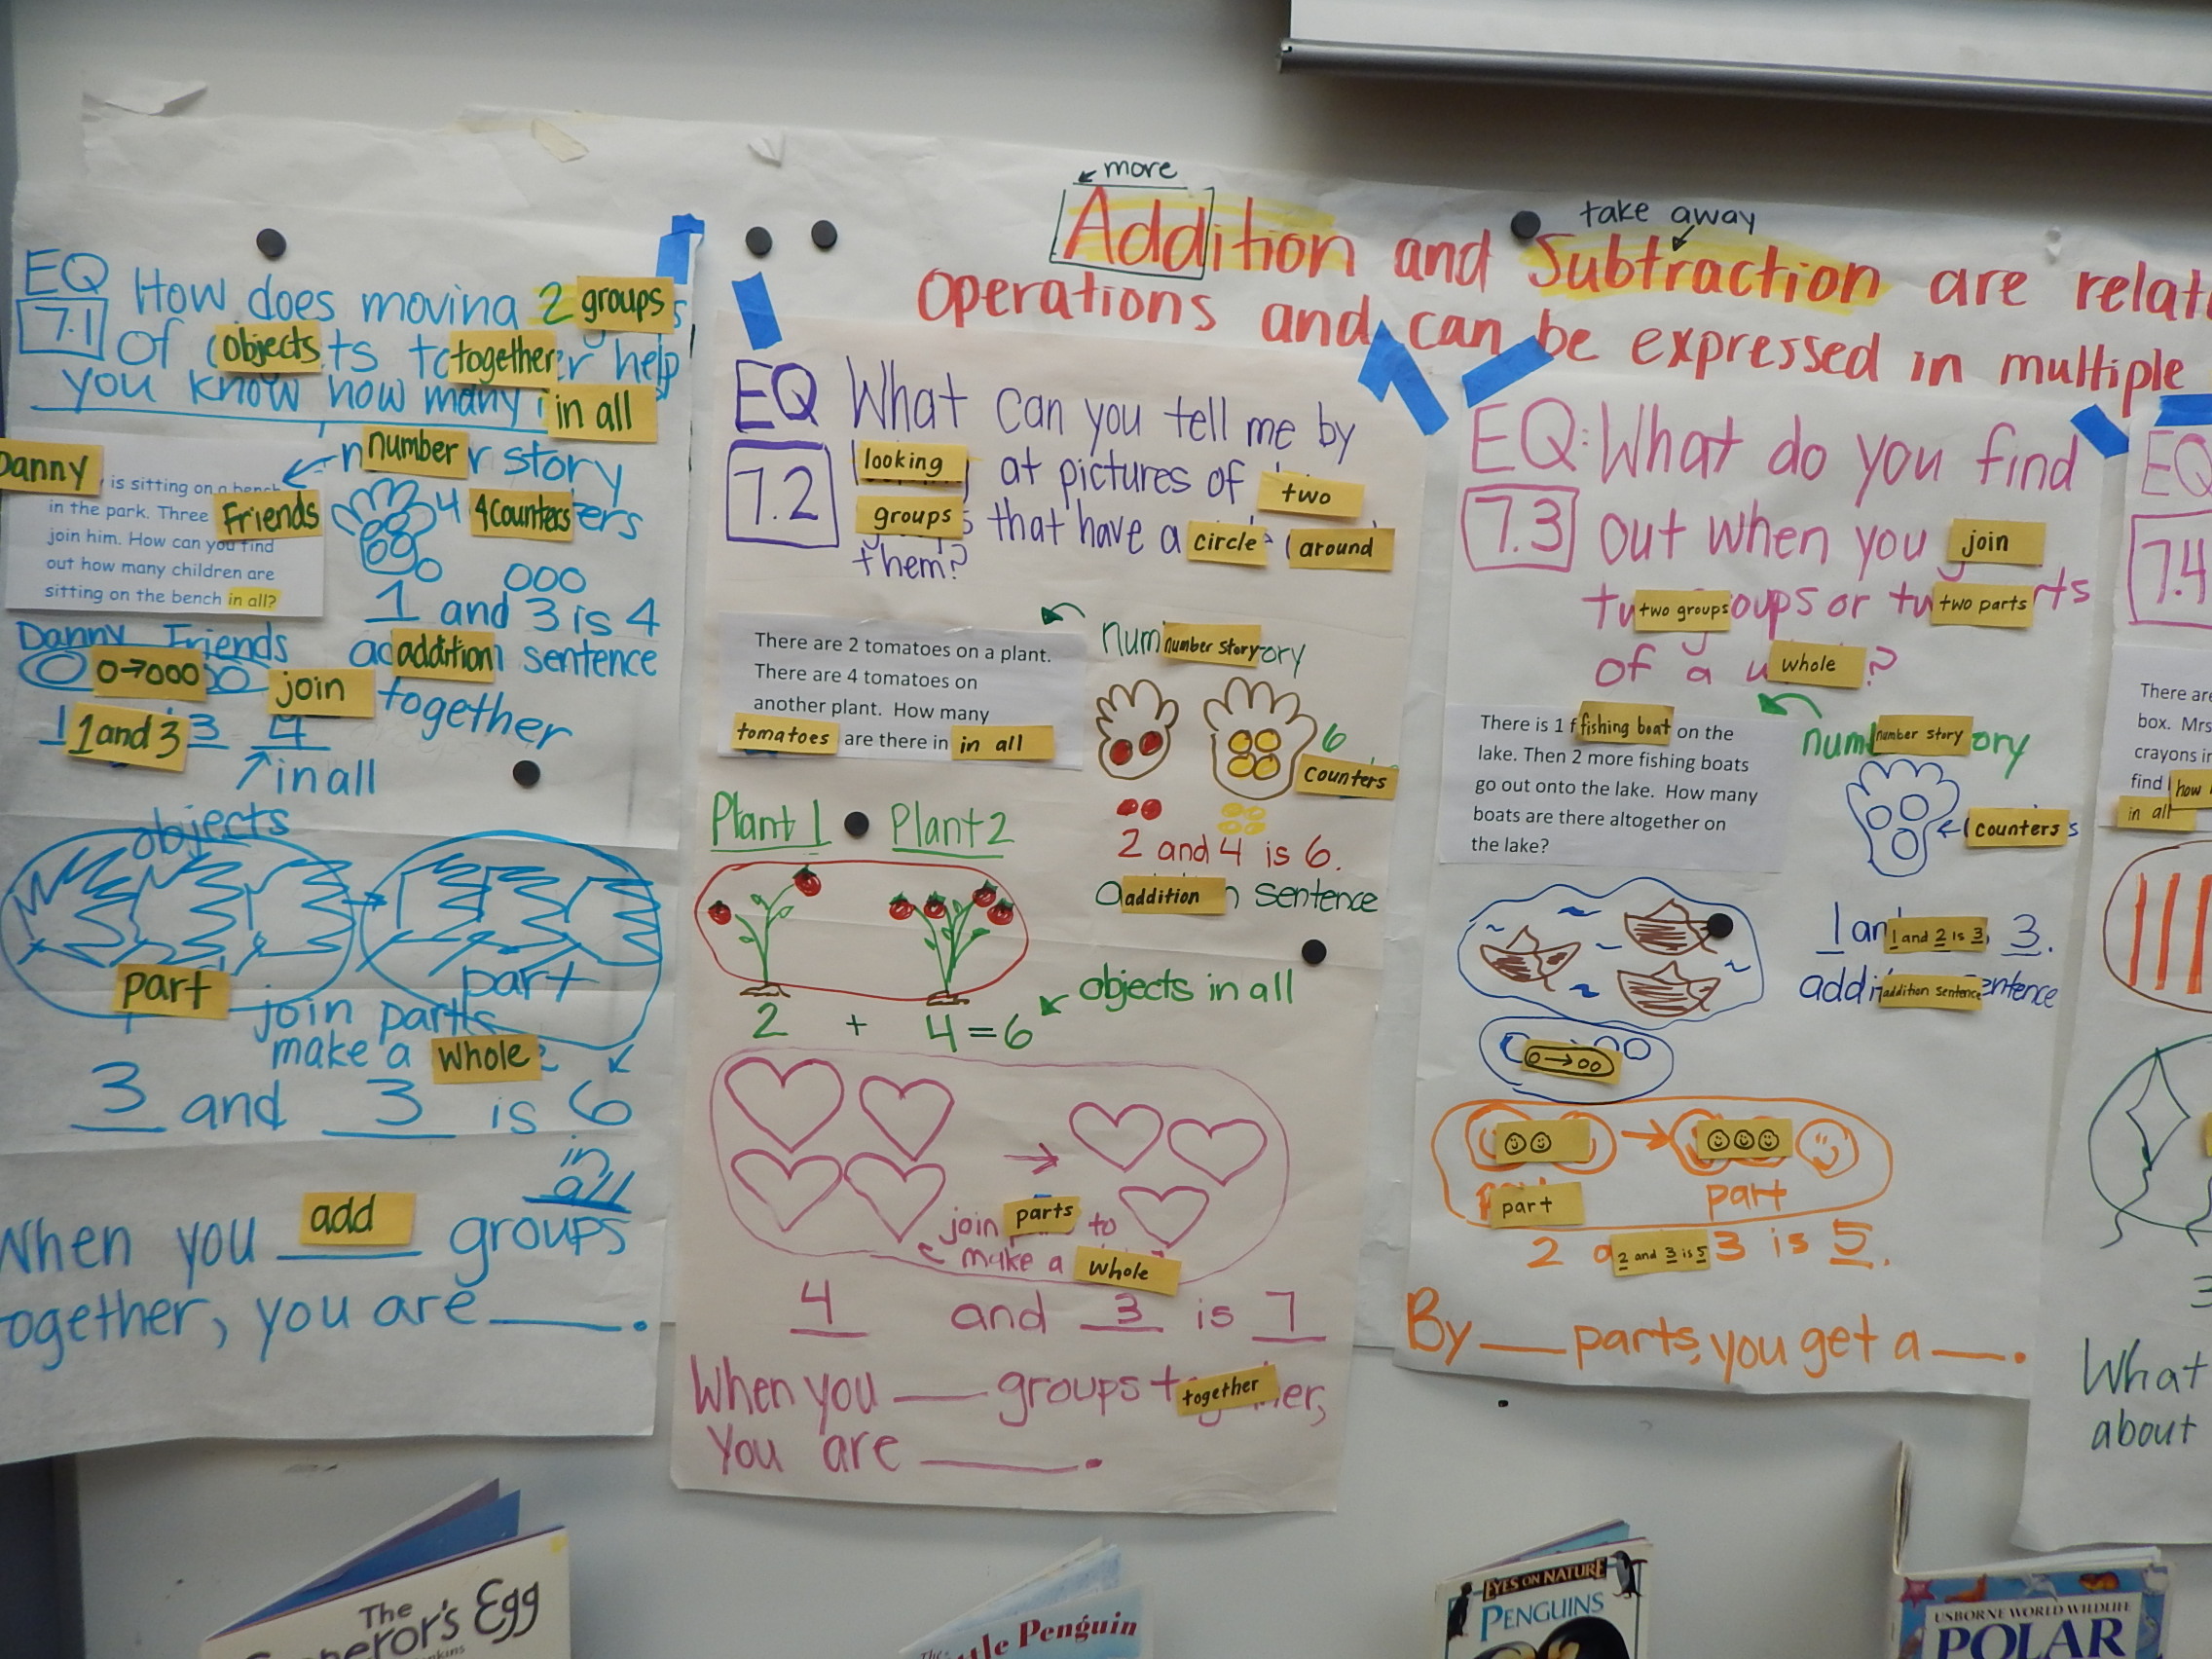 more
take away
Addition and Subtraction are relat
Operations and can be expressed in multiple
EQ
7.1
How does moving 2 groups
of objects together help
you know how many in all
number story
Danny is sitting on a bench
in the park. Three Friends
join him. How can you find
out how many children are
sitting on the bench in all?
4 4 Counters
1 and 3 is 4
addition sentence
Danny Friends
0→000
join together
1 1 and 3 3 4
in all
objects
part part
join parts
make a whole
3 and 3 is 6
in all
When you add groups
together, you are ____.
EQ
7.2
What can you tell me by
looking at pictures of two
groups that have a circle around
them?
number story
There are 2 tomatoes on a plant.
There are 4 tomatoes on
another plant. How many
tomatoes are there in in all
6
counters
2 and 4 is 6.
addition sentence
Plant 1 Plant 2
objects in all
2 + 4 = 6
join parts to
make a whole
4 and 3 is 7
When you ____ groups together,
You are ____.
EQ:
7.3
What do you find
out when you join
two groups or two parts
of a whole?
number story
There is 1 fishing boat on the
lake. Then 2 more fishing boats
go out onto the lake. How many
boats are there altogether on
the lake?
counters
1 and 2 is 3, 3.
addition sentence
0→00
part part
2 2 and 3 is 5 3 is 5.
By ____ parts, you get a ____.
EQ
7.4
There are
box. Mrs
crayons in
find how
in all
3
What
about
The
Emperor's Egg
The
Little Penguin
EYES ON NATURE
PENGUINS
USBORNE WORLD WILDLIFE
POLAR